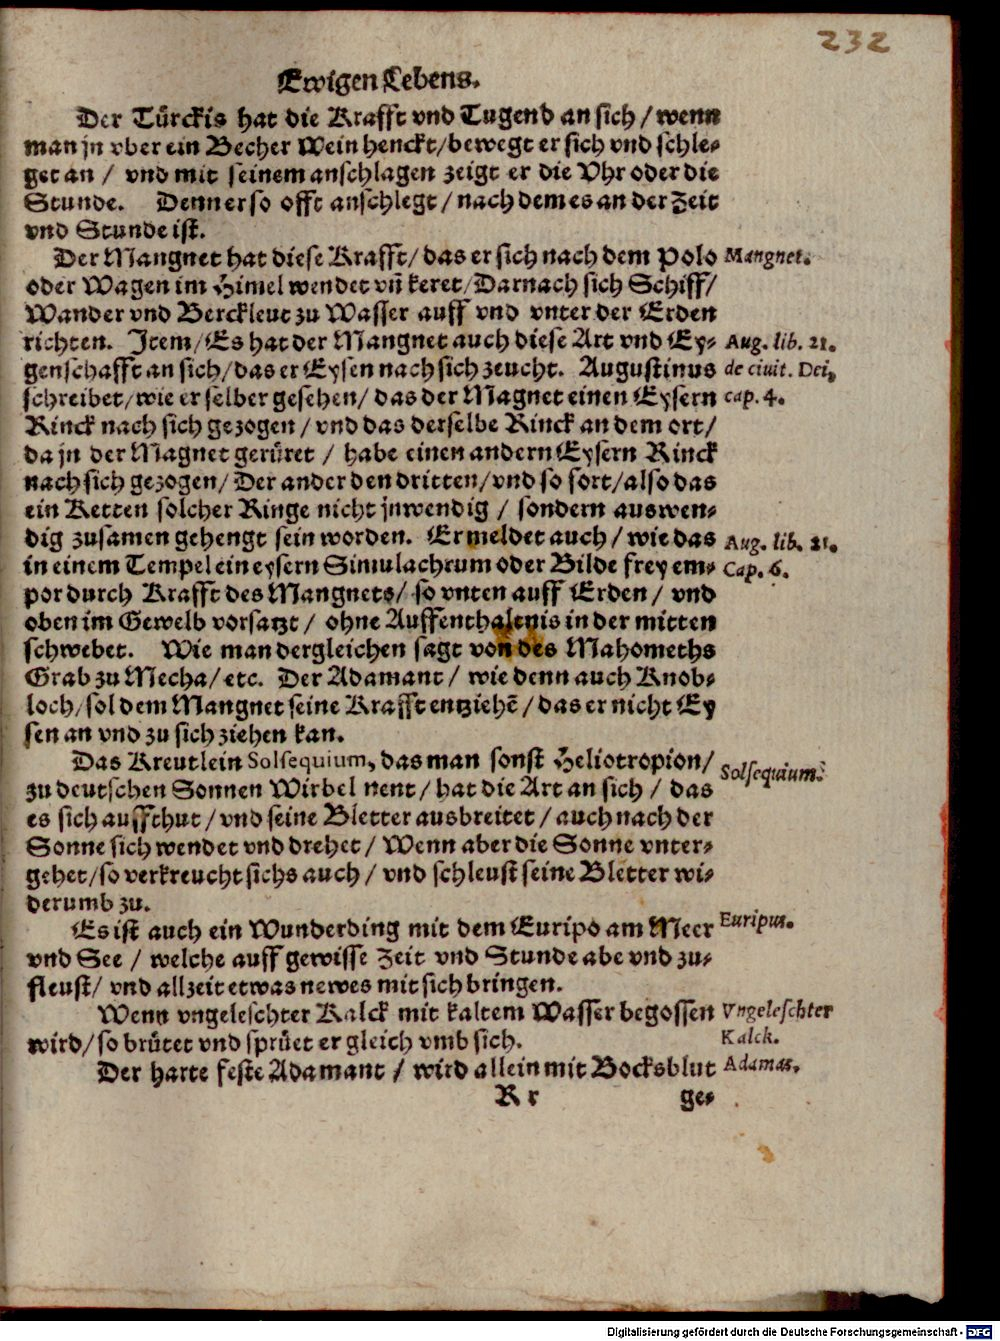 232
Ewigen Lebens.
Der Türckis hat die Krafft vnd Tugend an sich / wenn
man jn vber ein Becher Wein henckt/bewegt er sich vnd schle-
get an / vnd mit seinem anschlagen zeigt er die Vhr oder die
Stunde. Denn er so offt anschlegt / nach dem es an der Zeit
vnd Stunde ist.
Der Mangnet hat diese Krafft/ das er sich nach dem Polo
Mangnet.
oder Wagen im Himel wendet vñ keret/Darnach sich Schiff/
Wander vnd Berckleut zu Wasser auff vnd vnter der Erden
richten. Item/Es hat der Mangnet auch diese Art vnd Ey-
Aug. lib. 21.
genschafft an sich/das er Eysen nach sich zeucht. Augustinus
de ciuit. Dei,
schreibet/wie er selber gesehen/ das der Magnet einen Eysern
cap. 4.
Rinck nach sich gezogen / vnd das derselbe Rinck an dem ort/
da jn der Magnet gerüret / habe einen andern Eysern Rinck
nach sich gezogen/ Der ander den dritten/vnd so fort/also das
ein Ketten solcher Ringe nicht jnwendig / sondern auswen-
dig zusamen gehengt sein worden. Er meldet auch / wie das
Aug. lib. 21.
in einem Tempel ein eysern Simulachrum oder Bilde frey em-
Cap. 6.
por durch Krafft des Mangnets/ so vnten auff Erden / vnd
oben im Gewelb vorsatzt / ohne Auffenthaltnis in der mitten
schwebet. Wie man dergleichen sagt von des Mahomeths
Grab zu Mecha/ etc. Der Adamant / wie denn auch Knob-
loch/ sol dem Mangnet seine Krafft entziehẽ / das er nicht Ey
sen an vnd zu sich ziehen kan.
Das Kreutlein Solsequium, das man sonst Heliotropion/
Solsequium.
zu deutschen Sonnen Wirbel nent / hat die Art an sich / das
es sich auffthut / vnd seine Bletter ausbreitet / auch nach der
Sonne sich wendet vnd drehet / Wenn aber die Sonne vnter-
gehet/so verkreucht sichs auch / vnd schleust seine Bletter wi-
derumb zu.
Es ist auch ein Wunderding mit dem Euripo am Meer
Euripus.
vnd See / welche auff gewisse Zeit vnd Stunde abe vnd zu-
fleust/ vnd allzeit etwas newes mit sich bringen.
Wenn vngeleschter Kalck mit kaltem Wasser begossen
Vngeleschter
wird/ so brütet vnd sprüet er gleich vmb sich.
Kalck.
Der harte feste Adamant / wird allein mit Bocksblut
Adamas.
R r
ge-
Digitalisierung gefördert durch die Deutsche Forschungsgemeinschaft - DFG